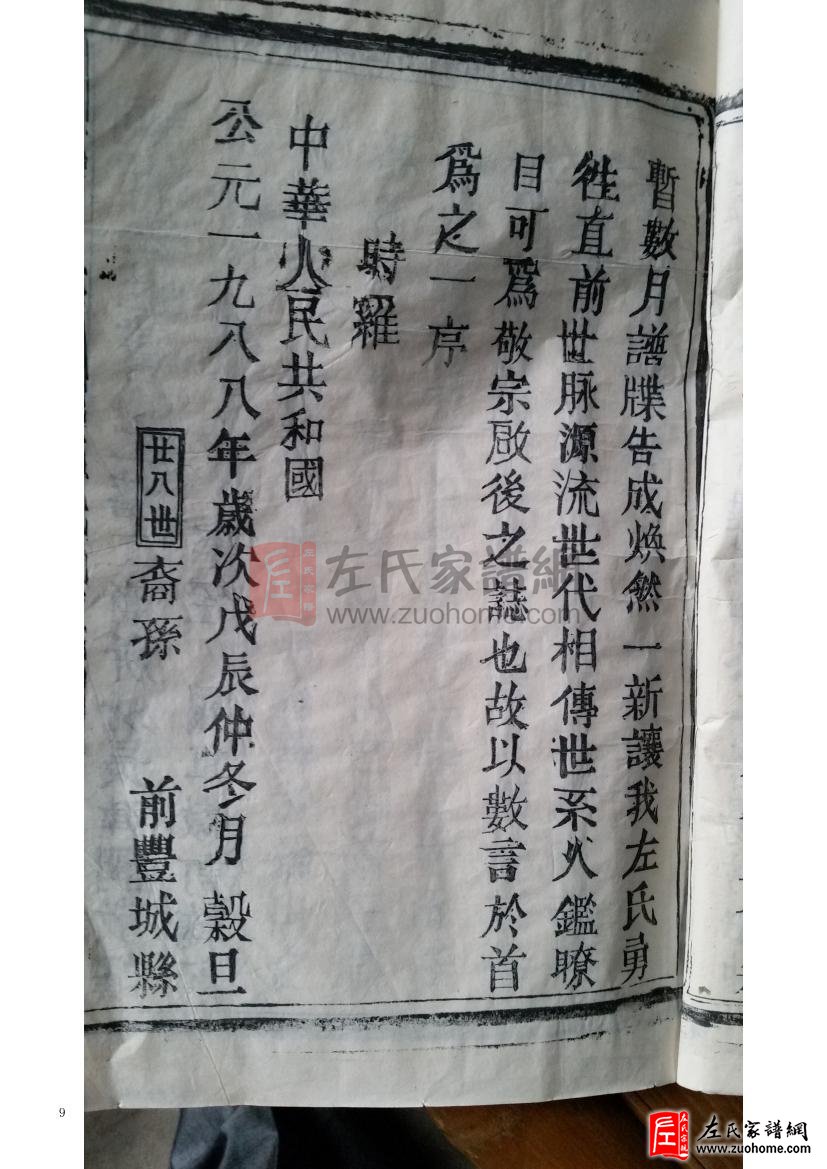 暫數月譜牒告成煥然一新讓我左氏勇
徃直前世脉源流世代相傳世系火鑑瞭
目可爲敬宗啟後之誌也故以數言於首
爲之一序
時羅
中華人民共和國
公元一九八八年歲次戊辰仲冬月榖旦
廿八世裔孫 前豐城縣
左氏家譜網
www.zuohome.com
9
左氏家譜網
www.zuohome.com